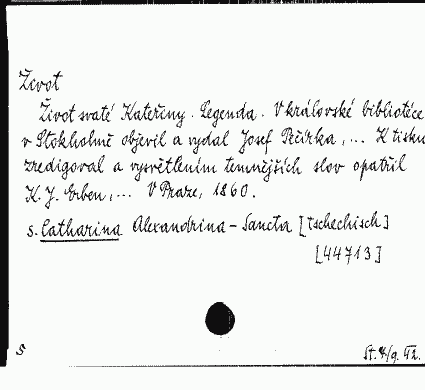 Život
Život svaté Kateřiny. Legenda. V královské bibliotéce
v Stokholmě objevil a vydal Josef Pečírka, ... K tisku
zredigoval a vysvětlením temnějších slov opatřil
K. J. Erben, ... V Praze, 1860.
s. Catharina Alexandrina - Sancta [tschechisch]
[44713]
S